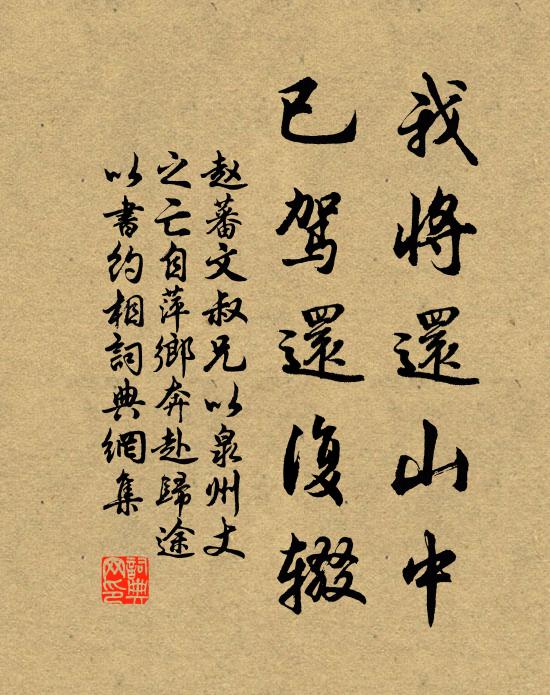 我将還山中
已驾還復辍
赵蕃文叔兄以泉州丈
之亡自萍鄉奔赴歸途
以書約相詞典網集
詞典
网印